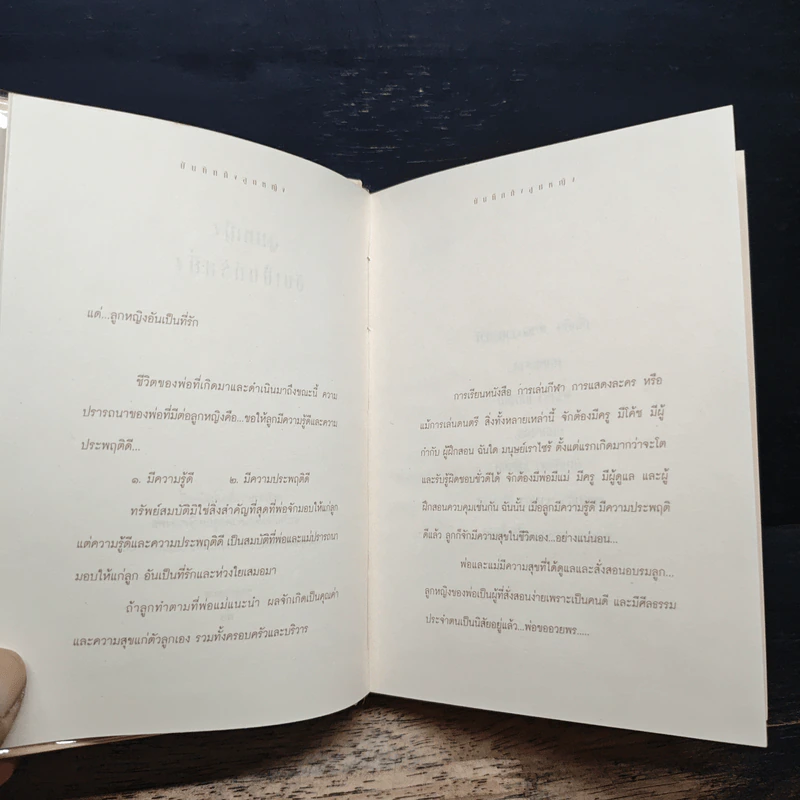 บันทึกถึงลูกหญิง
แด่...ลูกหญิงอันเป็นที่รัก
ชีวิตของพ่อที่เกิดมาและดำเนินมาถึงขณะนี้ ความ
ปรารถนาของพ่อที่มีต่อลูกหญิงคือ...ขอให้ลูกมีความรู้ดีและความ
ประพฤติดี...
๑. มีความรู้ดี ๒. มีความประพฤติดี
ทรัพย์สมบัติมิใช่สิ่งสำคัญที่สุดที่พ่อจักมอบให้แก่ลูก
แต่ความรู้ดีและความประพฤติดี เป็นสมบัติที่พ่อและแม่ปรารถนา
มอบให้แก่ลูก อันเป็นที่รักและห่วงใยเสมอมา
ถ้าลูกทำตามที่พ่อแม่แนะนำ ผลจักเกิดเป็นคุณค่า
และความสุขแก่ตัวลูกเอง รวมทั้งครอบครัวและบริวาร
บันทึกถึงลูกหญิง
การเรียนหนังสือ การเล่นกีฬา การแสดงละคร หรือ
แม้การเล่นดนตรี สิ่งทั้งหลายเหล่านี้ จักต้องมีครู มีโค้ช มีผู้
กำกับ ผู้ฝึกสอน ฉันใด มนุษย์เราไซร้ ตั้งแต่แรกเกิดมากว่าจะโต
และรับรู้ผิดชอบชั่วดีได้ จักต้องมีพ่อมีแม่ มีครู มีผู้ดูแล และผู้
ฝึกสอนควบคุมเช่นกัน ฉันนั้น เมื่อลูกมีความรู้ดี มีความประพฤติ
ดีแล้ว ลูกก็จักมีความสุขในชีวิตเอง...อย่างแน่นอน...
พ่อและแม่มีความสุขที่ได้ดูแลและสั่งสอนอบรมลูก...
ลูกหญิงของพ่อเป็นผู้ที่สั่งสอนง่ายเพราะเป็นคนดี และมีศีลธรรม
ประจำตนเป็นนิสัยอยู่แล้ว...พ่อขออวยพร.....